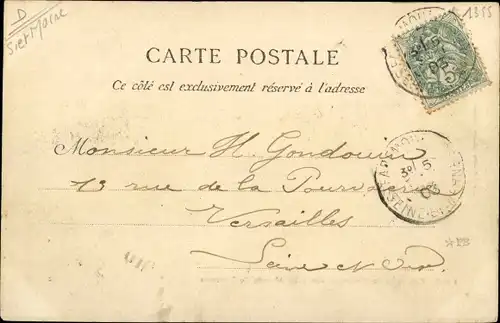 D
S et Marne
1355
CARTE POSTALE
Ce côté est exclusivement réservé à l'adresse
Monsieur H. Gondouin
13 rue de la Pourvoierie
Versailles
Seine et Oise
3E 5
03
SEINE-ET-